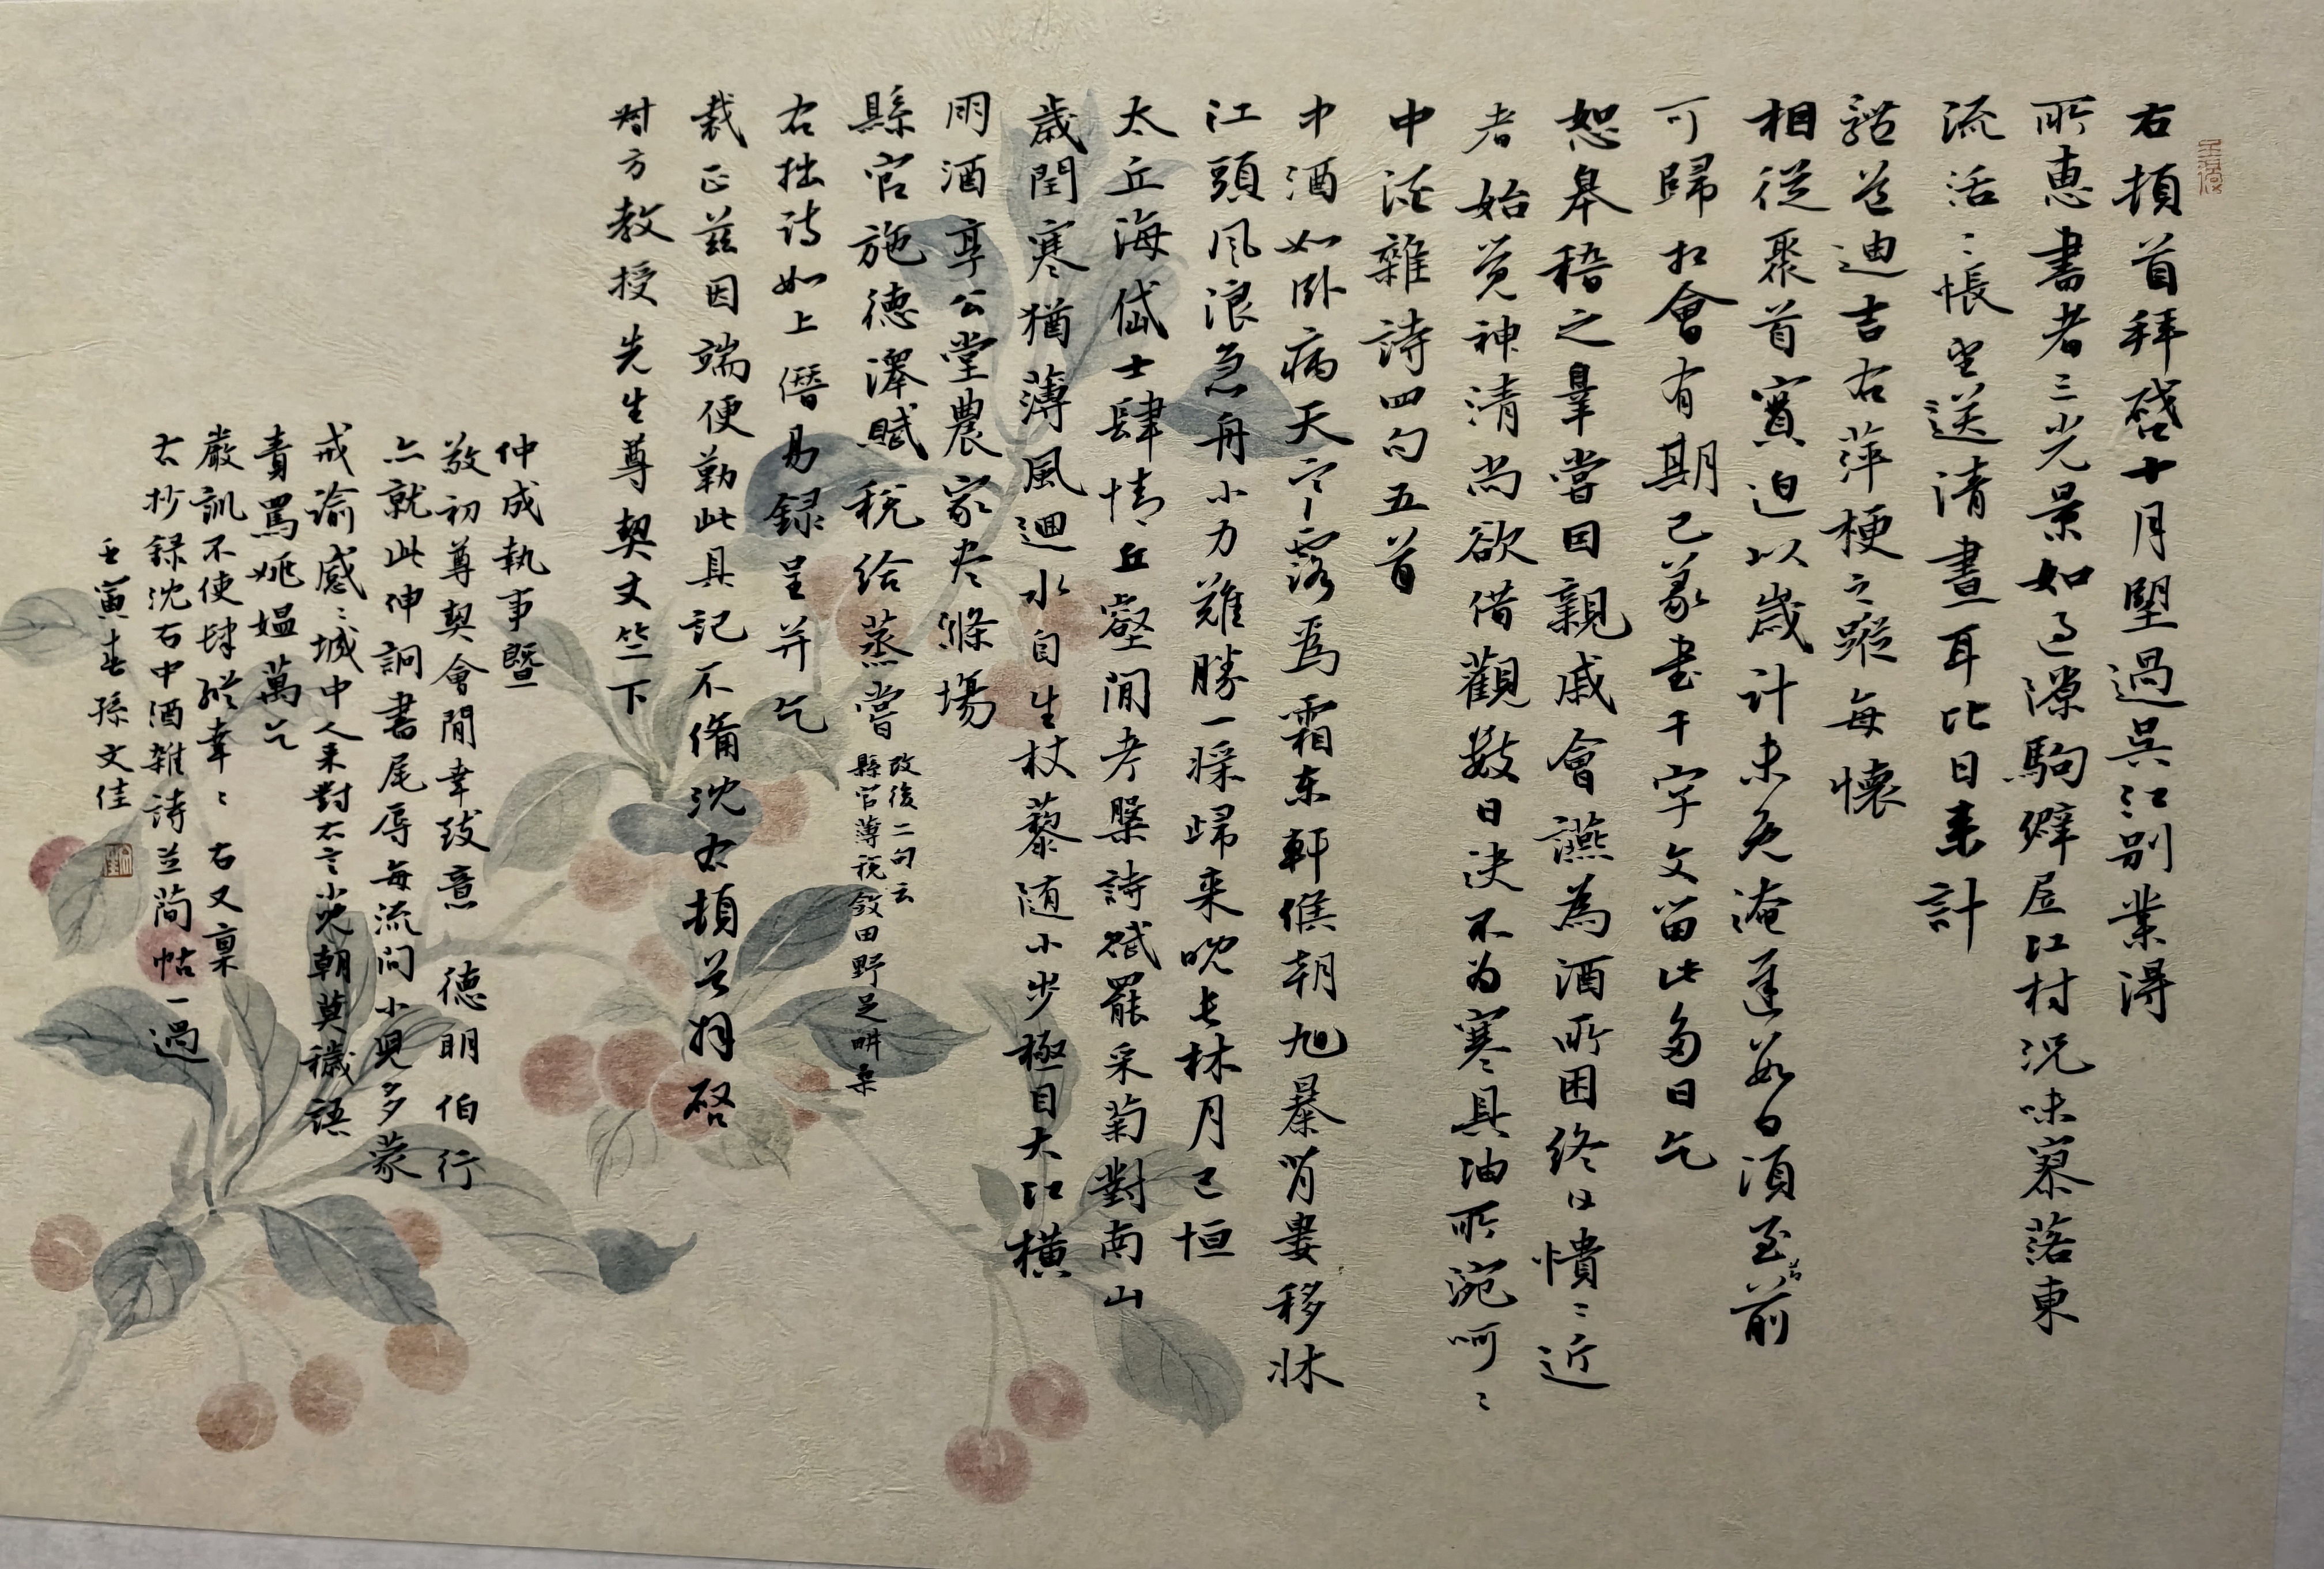 右頓首拜啓十月望過吳江別業得
所惠書者三光景如過隙駒僻居江村況味寥落東
流活〻悵望送清晝耳比日來計
譜茂迪吉右萍梗之蹤每懷
相從聚首實迫以歲計未免淹蓬數日須至前
可歸拉會有期已篆書千字文留此多日乞
恕皋稽之辠嘗因親戚會讌為酒所困終日憒〻近
者始覺神清尚欲借觀數日決不為寒具油所涴呵〻
中酒雜詩四句五首
中酒如臥病天寒露爲霜東軒候朝旭暴背婁移牀
江頭風浪急舟小力難勝一寐歸來晚長林月已恒
太丘海岱士肆情丘壑間考槃詩賦罷采菊對南山
歲閏寒猶薄風迴水自生杖藜随小步極目大江橫
朋酒享公堂農家尽滌場
縣官施德澤賦稅給蒸嘗
改後二句云
縣官薄稅斂田野足耕桑
右拙詩如上僭易録呈并乞
裁正茲因端便勒此具記不備沈右頓首拜啓
時方教授先生尊契丈竺下
仲成執事暨
敬初尊契會間幸致意 德明伯行
亦就此伸詞書尾辱每流问小兒多蒙
戒諭感〻城中人来對右言炎朝莫穢語
責罵姚媪萬乞
嚴訓不使肆縱幸〻 右又稟
右抄録沈右中酒雜詩並简帖一過
壬寅春孫文佳